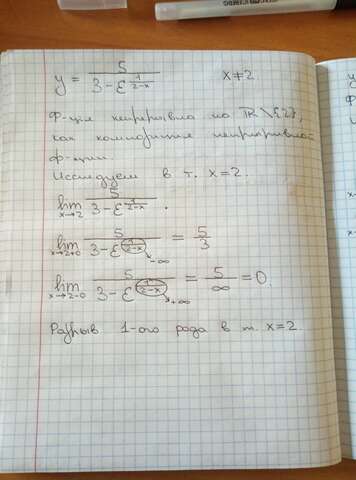 y = 5 / (3 - e^(1/(2-x)))    x ≠ 2
Ф-ция непрерывна на ℝ\{2},
как композиция непрерывной
ф-ции.
Исследуем в т. x = 2.
lim x→2 5 / (3 - e^(1/(2-x))).
lim x→2+0 5 / (3 - e^(1/(2-x))) = 5/3
→ -∞
lim x→2-0 5 / (3 - e^(1/(2-x))) = 5/∞ = 0
→ +∞
Разрыв 1-ого рода в т. x = 2